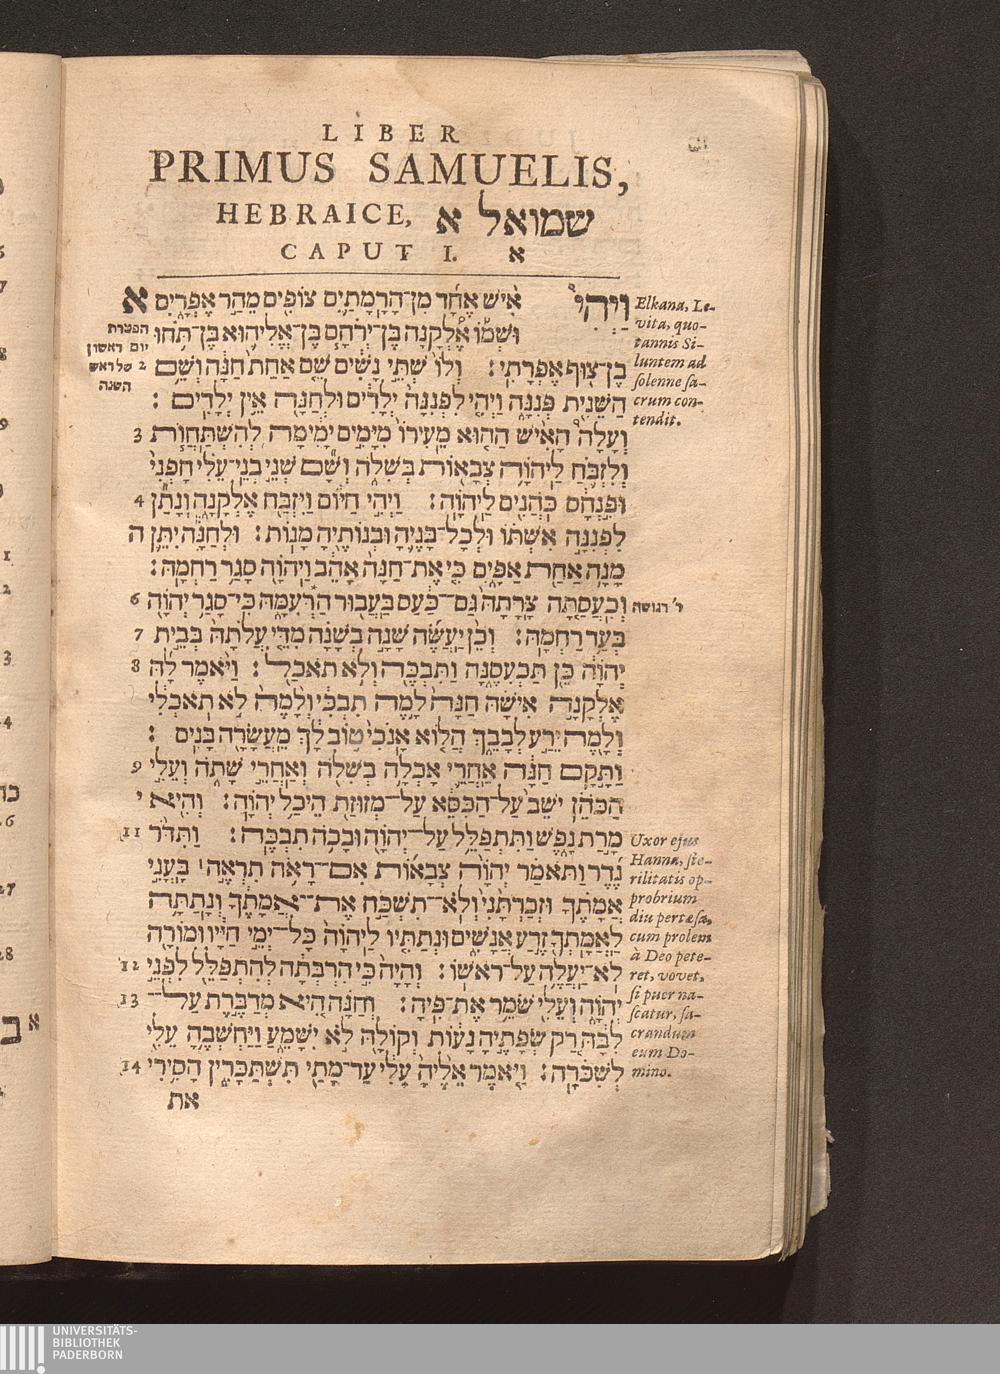 LIBER
PRIMUS SAMUELIS,
HEBRAICE, שמואל א
CAPUT I. א
וַיְהִי אִישׁ אֶחָד מִן־הָרָמָתַיִם צוֹפִים מֵהַר אֶפְרָיִם א
וּשְׁמוֹ אֶלְקָנָה בֶּן־יְרֹחָם בֶּן־אֱלִיהוּא בֶּן־תֹּחוּ
בֶן־צוּף אֶפְרָתִי׃ וְלוֹ שְׁתֵּי נָשִׁים שֵׁם אַחַת חַנָּה וְשֵׁם 2
הַשֵּׁנִית פְּנִנָּה וַיְהִי לִפְנִנָּה יְלָדִים וּלְחַנָּה אֵין יְלָדִים׃
וְעָלָה הָאִישׁ הַהוּא מֵעִירוֹ מִיָּמִים יָמִימָה לְהִשְׁתַּחֲוֺת 3
וְלִזְבֹּחַ לַיהוָֹה צְבָאוֹת בְּשִׁלֹה וְשָׁם שְׁנֵי בְנֵי־עֵלִי חָפְנִי
וּפִנְחָס כֹּהֲנִים לַיהוָֹה׃ וַיְהִי הַיּוֹם וַיִּזְבַּח אֶלְקָנָה וְנָתַן 4
לִפְנִנָּה אִשְׁתּוֹ וּלְכָל־בָּנֶיהָ וּבְנוֹתֶיהָ מָנוֹת׃ וּלְחַנָּה יִתֵּן ה
מָנָה אַחַת אַפָּיִם כִּי אֶת־חַנָּה אָהֵב וַיהוָֹה סָגַר רַחְמָהּ׃
וְכִעֲסַתָּה צָרָתָהּ גַּם־כַּעַס בַּעֲבוּר הַרְּעִמָהּ כִּי־סָגַר יְהוָֹה 6
בְּעַד רַחְמָהּ׃ וְכֵן יַעֲשֶׂה שָׁנָה בְשָׁנָה מִדֵּי עֲלֹתָהּ בְּבֵית 7
יְהוָֹה כֵּן תַּכְעִסֶנָּה וַתִּבְכֶּה וְלֹא תֹאכַל׃ וַיֹּאמֶר לָהּ 8
אֶלְקָנָה אִישָׁהּ חַנָּה לָמֶה תִבְכִּי וְלָמֶה לֹא תֹאכְלִי
וְלָמֶה יֵרַע לְבָבֵךְ הֲלוֹא אָנֹכִי טוֹב לָךְ מֵעֲשָׂרָה בָּנִים׃
וַתָּקָם חַנָּה אַחֲרֵי אָכְלָה בְשִׁלֹה וְאַחֲרֵי שָׁתֹה וְעֵלִי 9
הַכֹּהֵן יֹשֵׁב עַל־הַכִּסֵּא עַל־מְזוּזַת הֵיכַל יְהוָֹה׃ וְהִיא י
מָרַת נָפֶשׁ וַתִּתְפַּלֵּל עַל־יְהוָֹה וּבָכֹה תִבְכֶּה׃ וַתִּדֹּר 11
נֶדֶר וַתֹּאמַר יְהוָֹה צְבָאוֹת אִם־רָאֹה תִרְאֶה׀ בָּעֳנִי
אֲמָתֶךָ וּזְכַרְתַּנִי וְלֹא־תִשְׁכַּח אֶת־אֲמָתֶךָ וְנָתַתָּה
לַאֲמָתְךָ זֶרַע אֲנָשִׁים וּנְתַתִּיו לַיהוָֹה כָּל־יְמֵי חַיָּיו וּמוֹרָה
לֹא־יַעֲלֶה עַל־רֹאשׁוֹ׃ וְהָיָה כִּי הִרְבְּתָה לְהִתְפַּלֵּל לִפְנֵי 12
יְהוָֹה וְעֵלִי שֹׁמֵר אֶת־פִּיהָ׃ וְחַנָּה הִיא מְדַבֶּרֶת עַל־ 13
לִבָּהּ רַק שְׂפָתֶיהָ נָּעוֹת וְקוֹלָהּ לֹא יִשָּׁמֵעַ וַיַּחְשְׁבֶהָ עֵלִי
לְשִׁכֹּרָה׃ וַיֹּאמֶר אֵלֶיהָ עֵלִי עַד־מָתַי תִּשְׁתַּכָּרִין הָסִירִי 14
את
הפטרת
יום ראשון
של ראש
השנה
Elkana, Le-
vita, quo-
tannis Si-
luntem ad
solenne sa-
crum con-
tendit.
ר׳ דגושה
Uxor ejus
Hanna, ste-
rilitatis op-
probrium
diu pertæsa,
cum prolem
à Deo pete-
ret, vovet,
si puer na-
scatur, sa-
crandum
eum Do-
mino.
UNIVERSITÄTS-
BIBLIOTHEK
PADERBORN